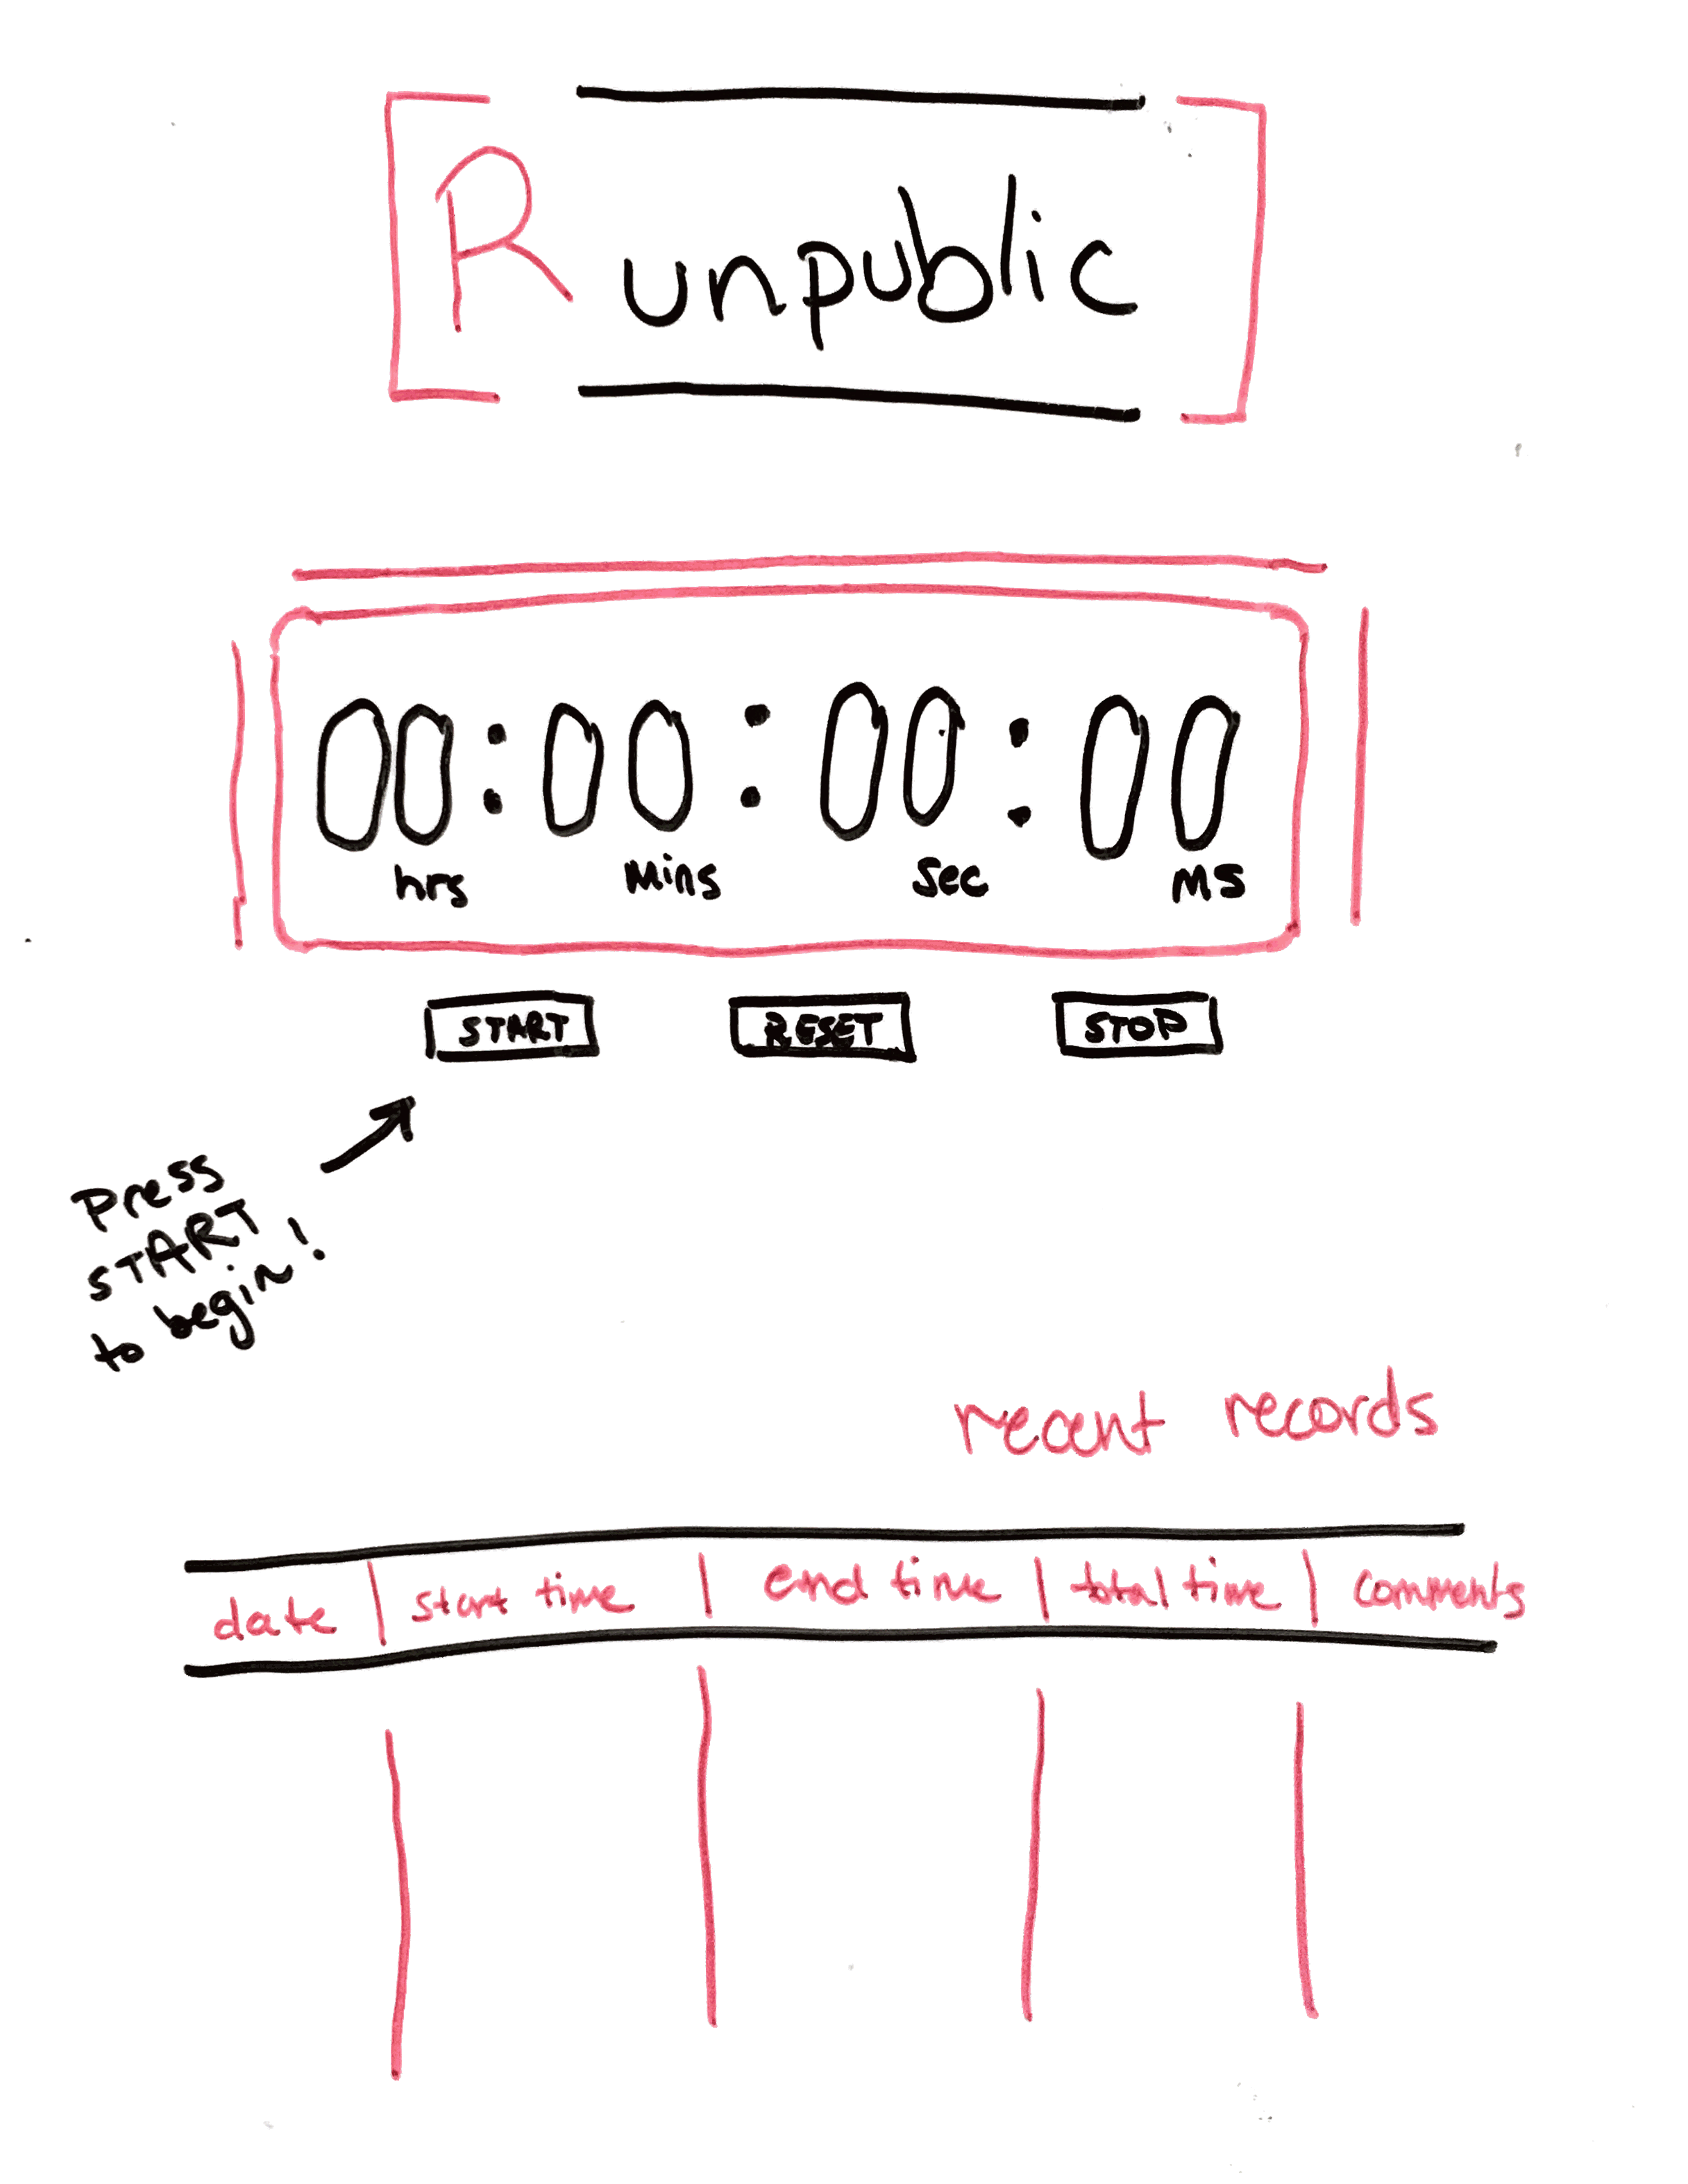 Runpublic
00:00:00:00
hrs mins sec ms
START RESET STOP
Press
START
to begin!
recent records
date | start time | end time | total time | comments